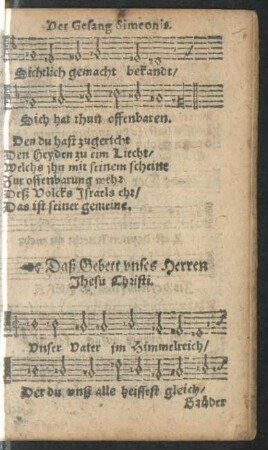 Der Gesang Simeonis.
Sichtlich gemacht bekandt/
Sich hat thun offenbaren.
Den du hast zugericht
Den Heyden zu eim Liecht/
Welchs jhn mit seinem scheine
Zur offenbarung mehr
Deß Volcks Israls ehr/
Das ist seiner gemeine.
Daß Gebett vnses Herren
Jhesu Christi.
Vnser Vater im Himmelreich/
Der du vnß alle heissest gleich/
Brüder